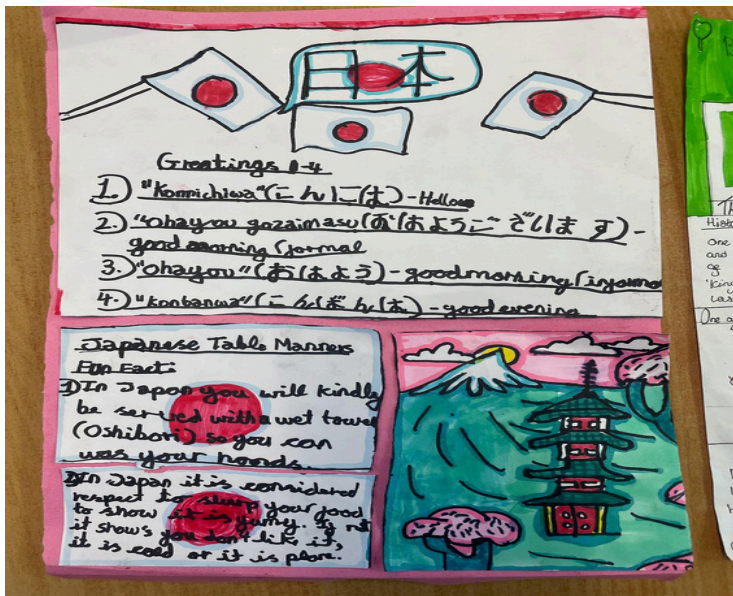 日本
Greetings 1-4
1.) "Konnichiwa" (こんにちは) - Hello
2.) "Ohayou gozaimasu (おはようございます) -
good morning (formal
3.) "Ohayou" (おはよう) - good morning (informa
4.) "Konbanwa" (こんばんは) - good evening
Japanese Table Manners
Fun Fact:
1) In Japan you will kindly
be served with a wet towel
(Oshibori) so you can
was your hands.
2) In Japan it is considered
respect to slurp your food
to show it is yummy. If not
it shows you don't like it,
it is cold or it is plane.
Histo
one
and
ge